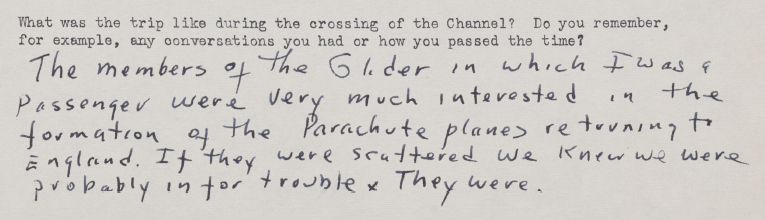 What was the trip like during the crossing of the Channel? Do you remember,
for example, any conversations you had or how you passed the time?
The members of the Glider in which I was a
Passenger were very much interested in the
formation of the Parachute planes returning to
England. If they were scattered we knew we were
probably in for trouble x They were.